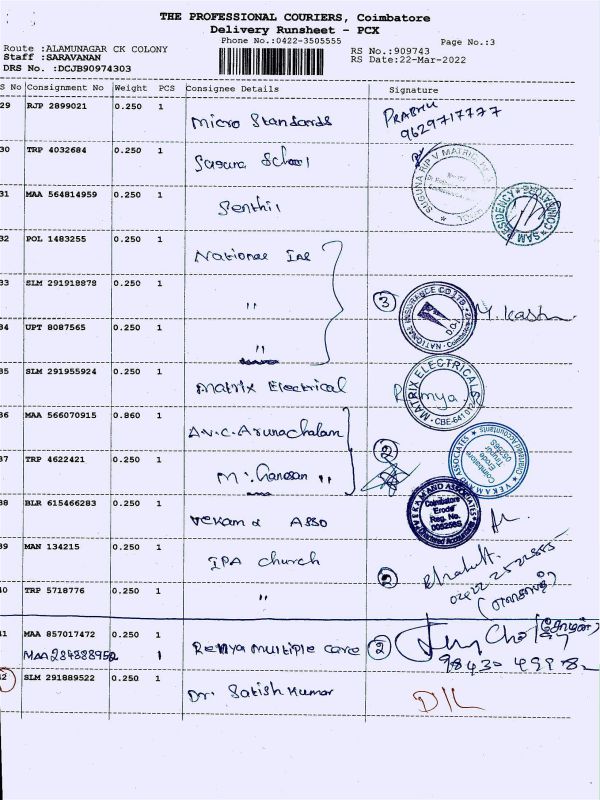 THE PROFESSIONAL COURIERS, Coimbatore
Delivery Runsheet - PCX
Phone No.:0422-3505555
Page No.:3
Route :ALAMUNAGAR CK COLONY
RS No.:909743
Staff :SARAVANAN
RS Date:22-Mar-2022
DRS No. :DCJB90974303
S No Consignment No Weight PCS Consignee Details Signature
29 RJP 2899021 0.250 1 Micro Standards PRABHU
9629717777
30 TRP 4032684 0.250 1 Suguna School
31 MAA 564814959 0.250 1 Senthil
SAM RESIDENCY
32 POL 1483255 0.250 1 National Ins
33 SLM 291918878 0.250 1 " 3 NATIONAL INSURANCE CO LTD
34 UPT 8087565 0.250 1 "
35 SLM 291955924 0.250 1 Matrix Electrical Remya MATRIX ELECTRICALS CBE-641 012
36 MAA 566070915 0.860 1 A.V.C. Arunachalam 2
37 TRP 4622421 0.250 1 M. Ganesan "
38 BLR 615466283 0.250 1 Vekam & Asso
VEKAM AND ASSOCIATES
Coimbatore
Erode
Reg. No.
006256S
Chartered Accountants
39 MAN 134215 0.250 1 IPA Church 2
40 TRP 5718776 0.250 1 "
41 MAA 857017472 0.250 1 Remya multiple care 2
MAA 284888952 1
42 SLM 291889522 0.250 1 Dr. Satish Kumar D/L